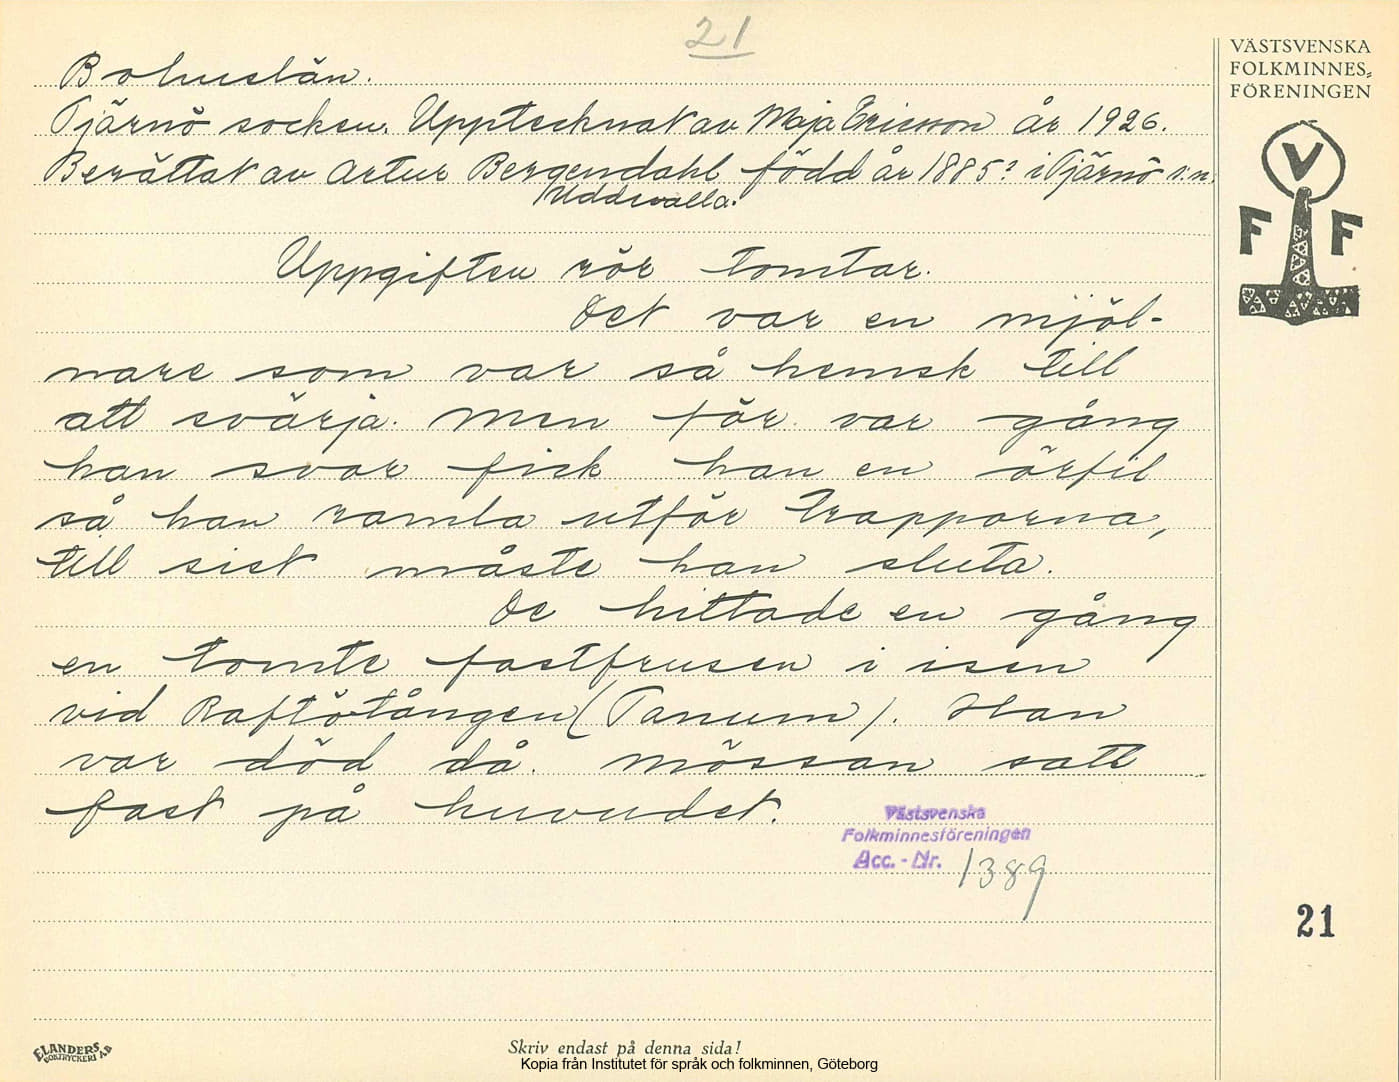 21
VÄSTSVENSKA
FOLKMINNES-
FÖRENINGEN
V
F F
Bohuslän.
Tjärnö socken. Upptecknat av Maja Ericsson år 1926.
Berättat av Artur Bergendahl född år 1885? i Tjärnö s:n.
Uddevalla.
Uppgiften rör tomtar.
Det var en mjöl-
nare som var så hemsk till
att svärja. Men för var gång
han svor fick han en örfil
så han ramla utför trapporna,
till sist måste han sluta.
De hittade en gång
en tomte fastfrusen i isen
vid Raftötången (Tanum). Han
var död då. Mössan satt
fast på huvudet.
Västsvenska
Folkminnesföreningen
Acc. - Nr. 1389
21
ELANDERS
BOKTRYCKERI A.B
Skriv endast på denna sida!
Kopia från Institutet för språk och folkminnen, Göteborg